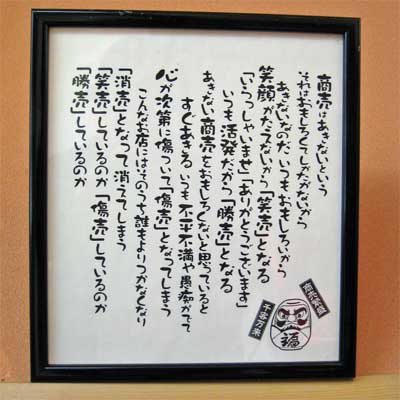 商売はあきないという
それはおもしろくてしかたがないから
あきないなのだ いつもおもしろいから
笑顔がたえないから「笑売」となる
「いらっしゃいませ」「ありがとうございます」
いつも活発だから「勝売」となる
あきない商売をおもしろくないと思っていると
すぐあきる いつも不平不満や愚痴がでて
心が次第に傷ついて「傷売」となってしまう
こんなお店にはそのうち誰もよりつかなくなり
「消売」となって消えてしまう
「笑売」しているのか「傷売」しているのか
「勝売」しているのか
商売繁盛
福
千客万来